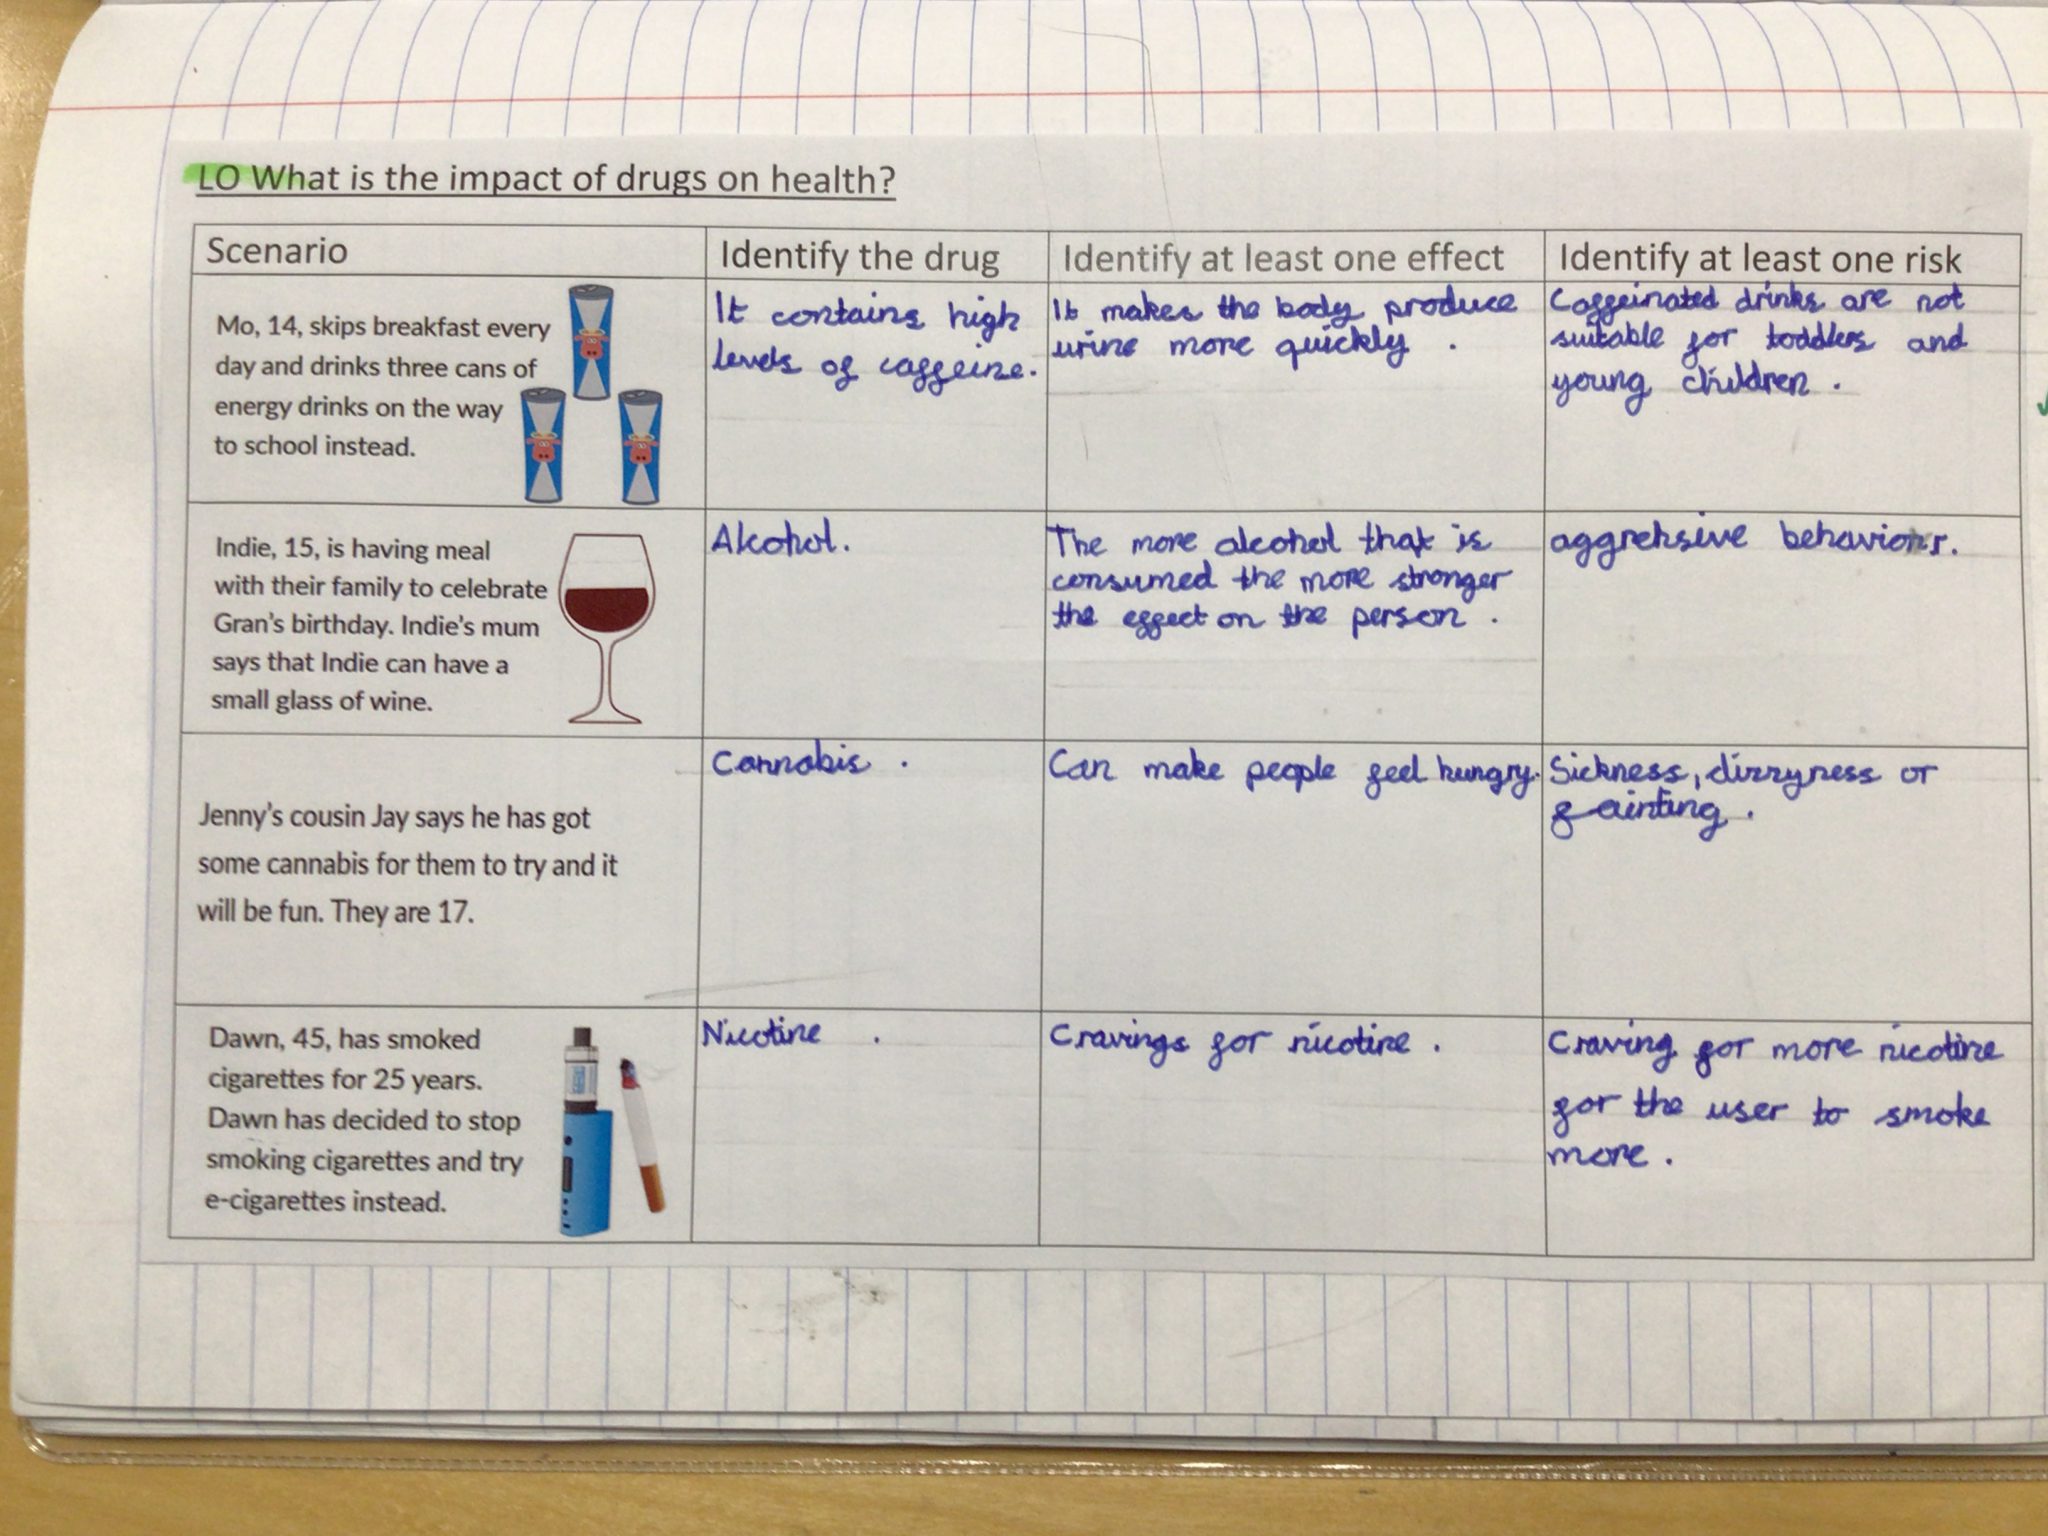 LO What is the impact of drugs on health?
Scenario
Identify the drug
Identify at least one effect
Identify at least one risk
Mo, 14, skips breakfast every
day and drinks three cans of
energy drinks on the way
to school instead.
It contains high
levels of caffeine.
It makes the body produce
urine more quickly .
Caffeinated drinks are not
suitable for toddlers and
young children .
Indie, 15, is having meal
with their family to celebrate
Gran's birthday. Indie's mum
says that Indie can have a
small glass of wine.
Alcohol.
The more alcohol that is
consumed the more stronger
the effect on the person .
aggrehsive behaviors.
Jenny's cousin Jay says he has got
some cannabis for them to try and it
will be fun. They are 17.
Cannabis .
Can make people feel hungry.
Sickness, dizzyness or
fainting .
Dawn, 45, has smoked
cigarettes for 25 years.
Dawn has decided to stop
smoking cigarettes and try
e-cigarettes instead.
Nicotine .
Cravings for nicotine .
Craving for more nicotine
for the user to smoke
more .